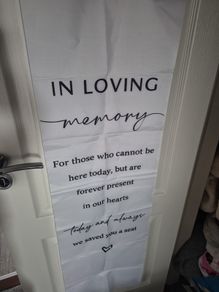 IN LOVING
memory
For those who cannot be
here today, but are
forever present
in our hearts
today and always
we saved you a seat